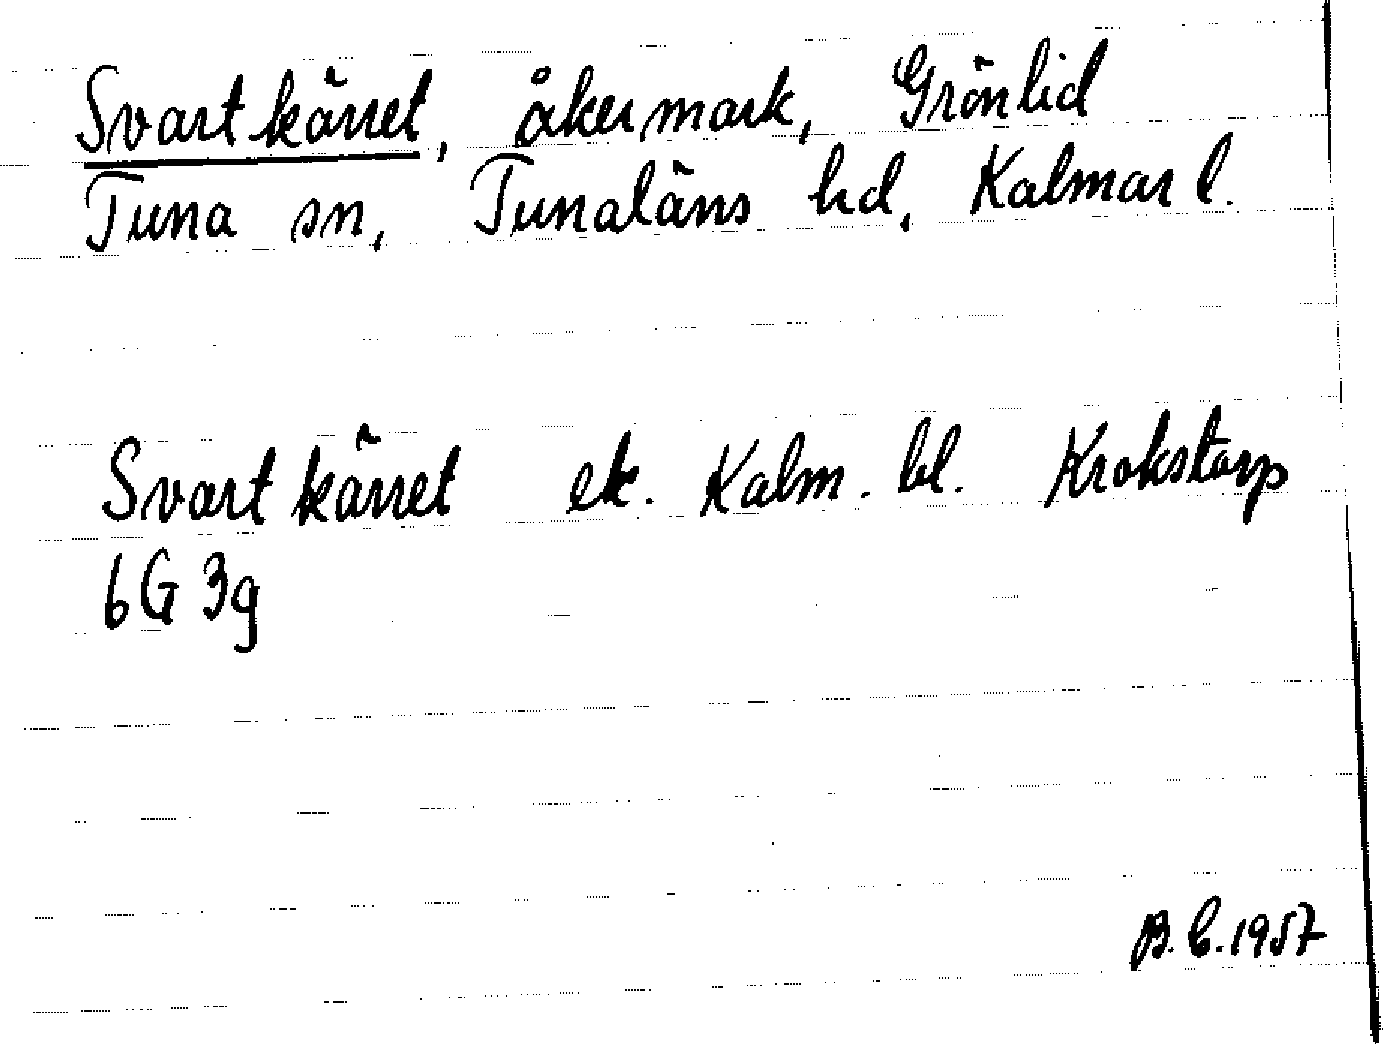 Svartkärret, åkermark, Grönlid
Tuna sn, Tunaläns hd, Kalmar l.
Svartkärret ek. Kalm. bl. Krokstorp
6G 3g
B. C. 1957